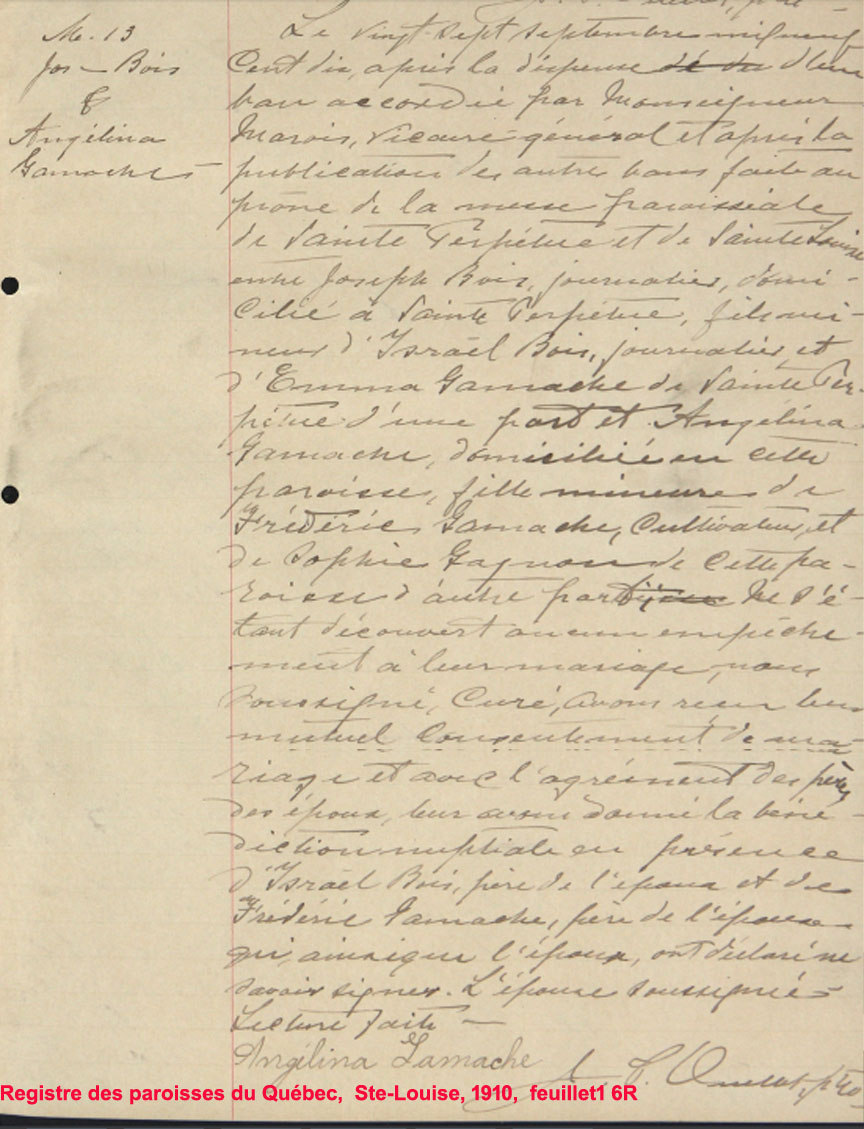 M. 13
Jos - Bois
&
Angélina
Gamache
Le vingt-sept septembre mil neuf
cent dix, après la dispense d'un
ban accordée par Monseigneur
Marois, vicaire-général et après la
publication des autres bans faite au
prône de la messe paroissiale
de Sainte Perpétue et de Sainte Louise
entre Joseph Bois, journalier, domi-
cilié à Sainte Perpétue, fils mi-
neur d'Israël Bois, journalier, et
d'Emma Gamache de Sainte Per-
pétue d'une part et Angélina
Gamache, domiciliée en cette
paroisse, fille mineure de
Frédéric Gamache, cultivateur, et
de Sophie Gagnon de cette pa-
roisse d'autre part Ne s'é-
tant découvert aucun empêche-
ment à leur mariage, nous
soussigné, Curé, avons reçu leur
mutuel consentement de ma-
riage et avec l'agrément des pères
des époux, leur avons donné la béné-
diction nuptiale en présence
d'Israël Bois, père de l'époux et de
Frédéric Gamache, père de l'épouse
qui, ainsi que l'époux, ont déclaré ne
savoir signer. L'épouse soussignée
Lecture faite -
Angélina Gamache
Ouellet, ptre
Registre des paroisses du Québec, Ste-Louise, 1910, feuillet1 6R